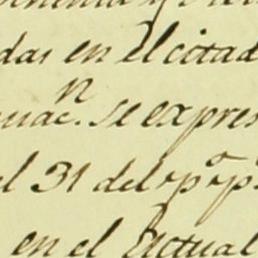 das en el citad
uac.n se expres
el 31 del p.o p.
en el Actual